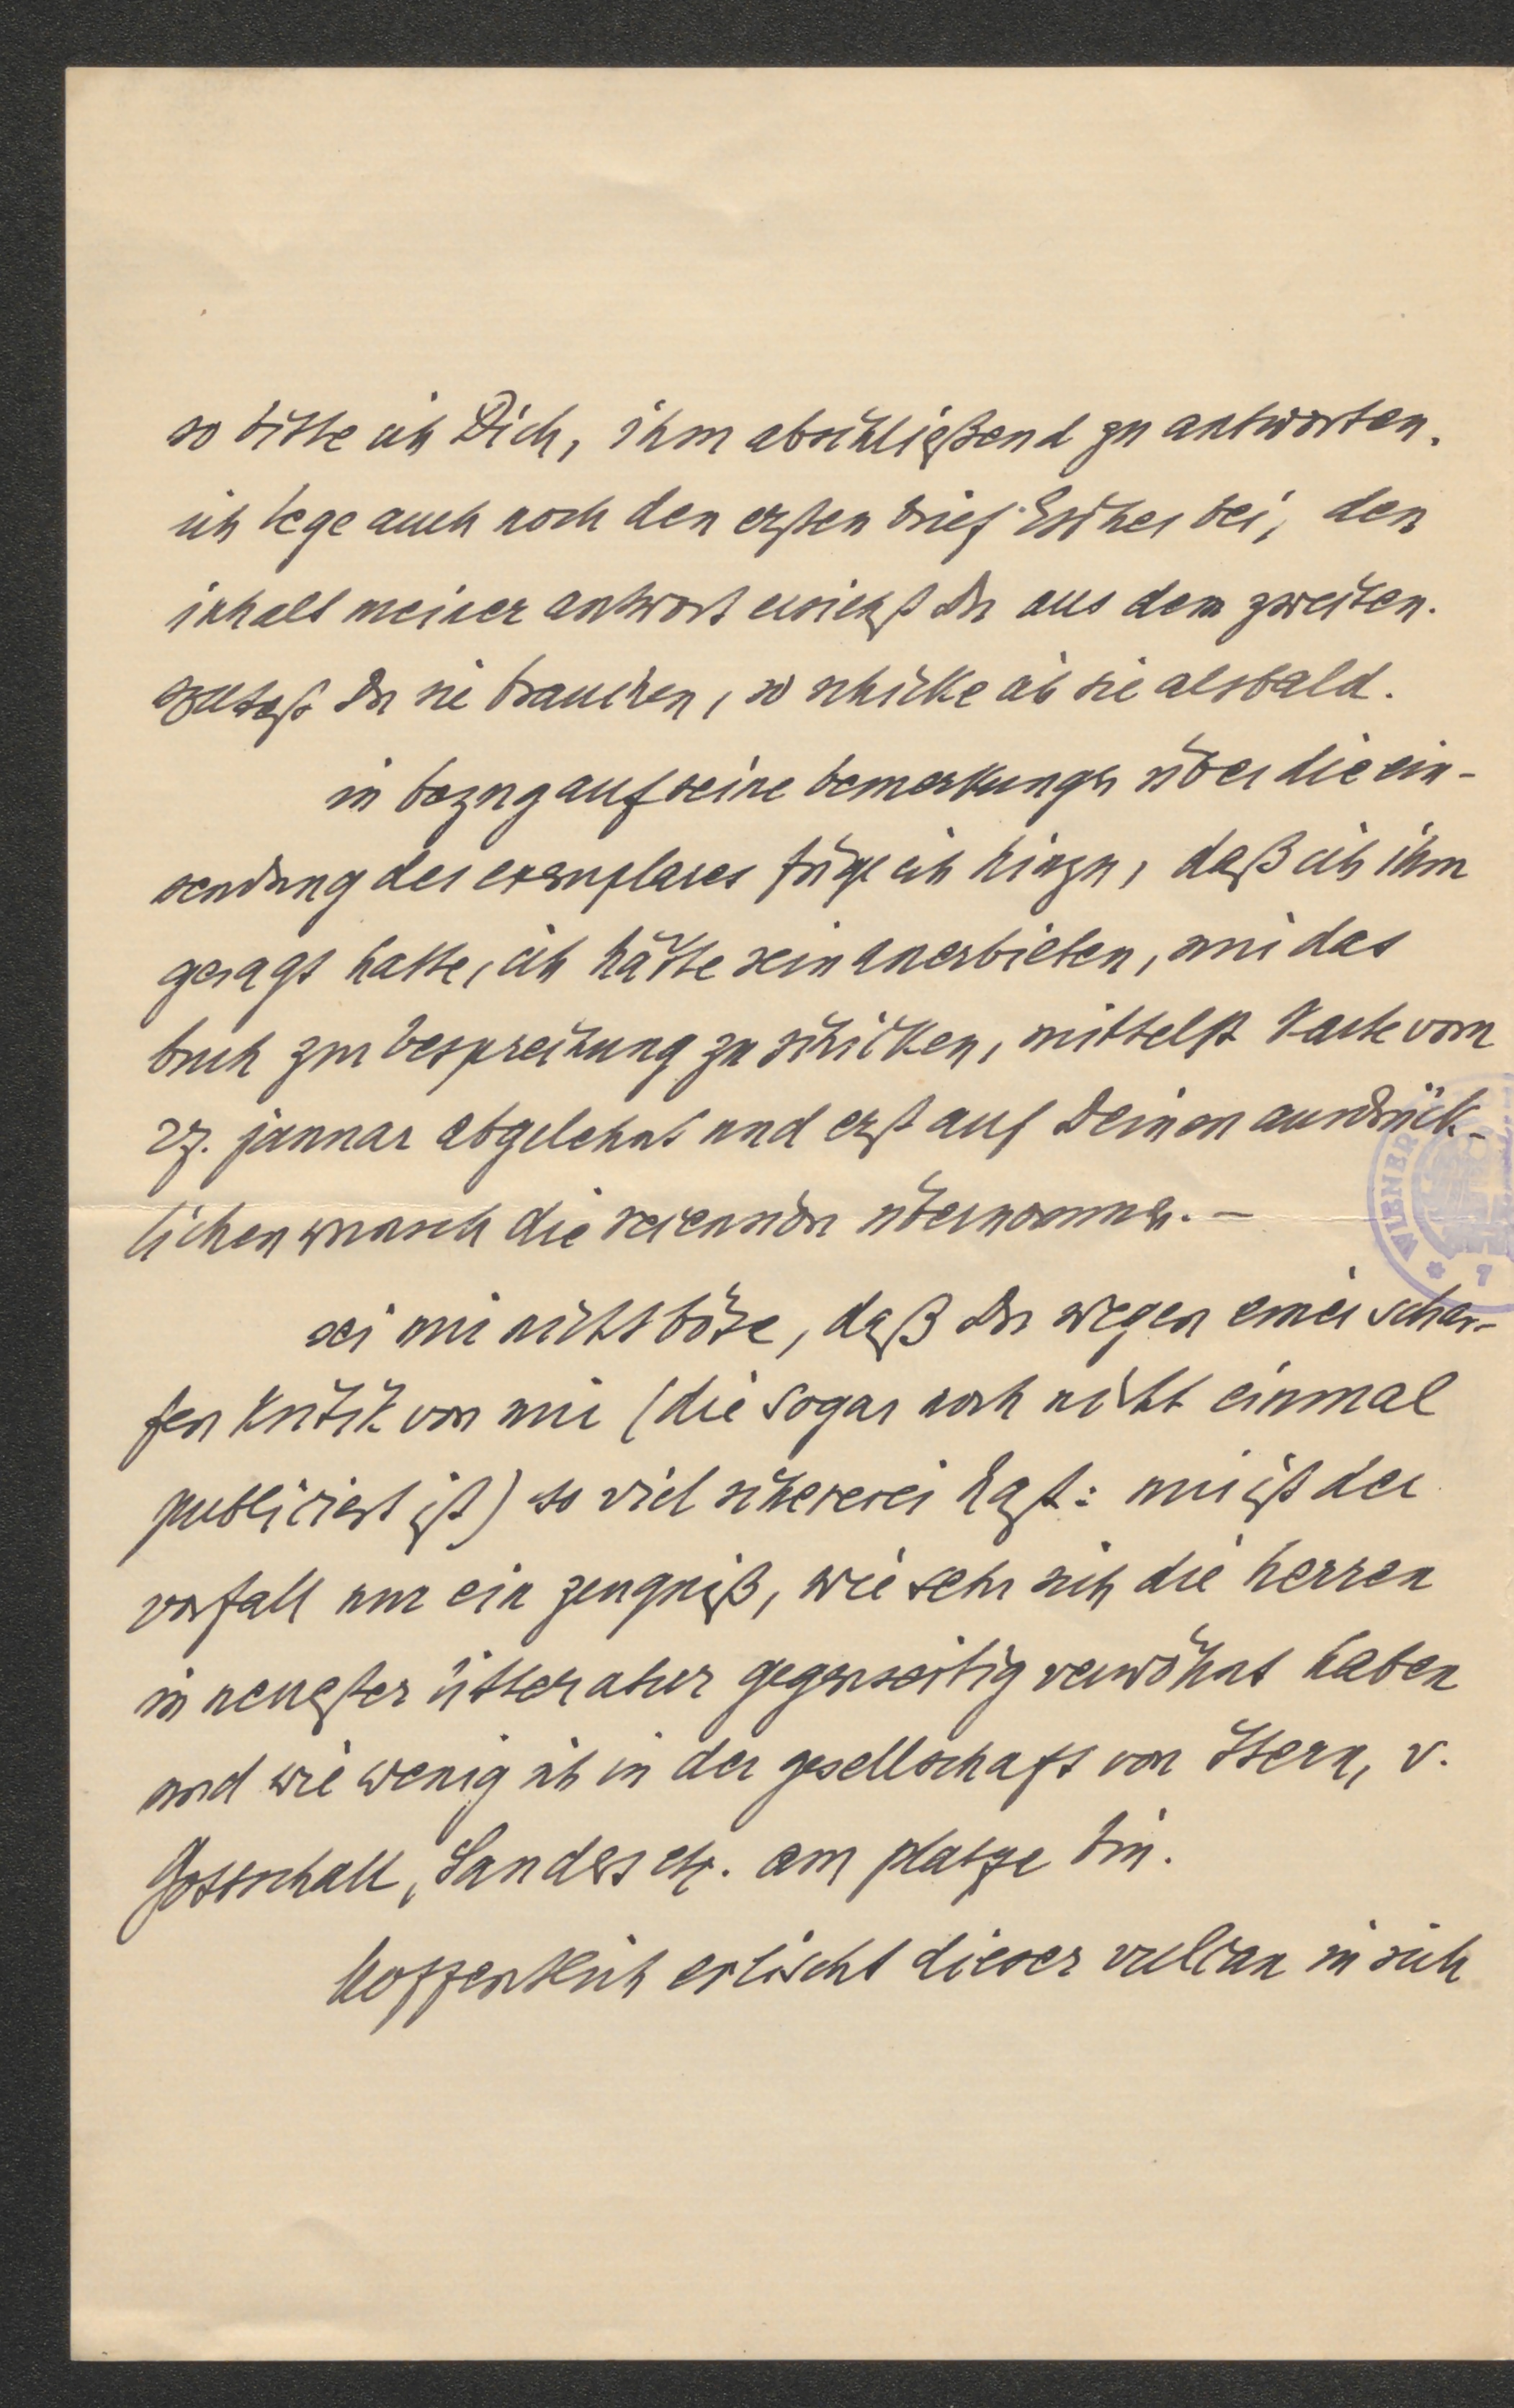 so bitte ich Dich, ihm abschließend zu antworten.
ich lege auch noch den ersten brief bei, den
inhalt meiner antwort ersiehst Du aus dem zweiten.
solltest Du sie brauchen, so schicke ich sie alsbald.
in bezug auf seine bemerkungen über die ein-
sendung des exemplares füge ich hinzu, daß ich ihm
gesagt hatte, ich hätte sein anerbieten, mir das
buch zur besprechung zu schicken, mittelst karte vom
27. januar abgelehnt und erst auf Deinen ausdrück-
lichen wunsch die recension übernommen. –
sei mir nicht böse, daß Du wegen einer schar-
fen kritik von mir (die sogar noch nicht einmal
publiciert ist) so viel schererei hast: mir ist der
vorfall nur ein zeugniß, wie sehr sich die herren
in neuester litteratur gegenseitig verwöhnt haben
und wie wenig ich in der gesellschaft von Stern, v.
Gottschall, Sanders etc. am platze bin.
hoffentlich erlischt dieser vulcan in sich
WIENER